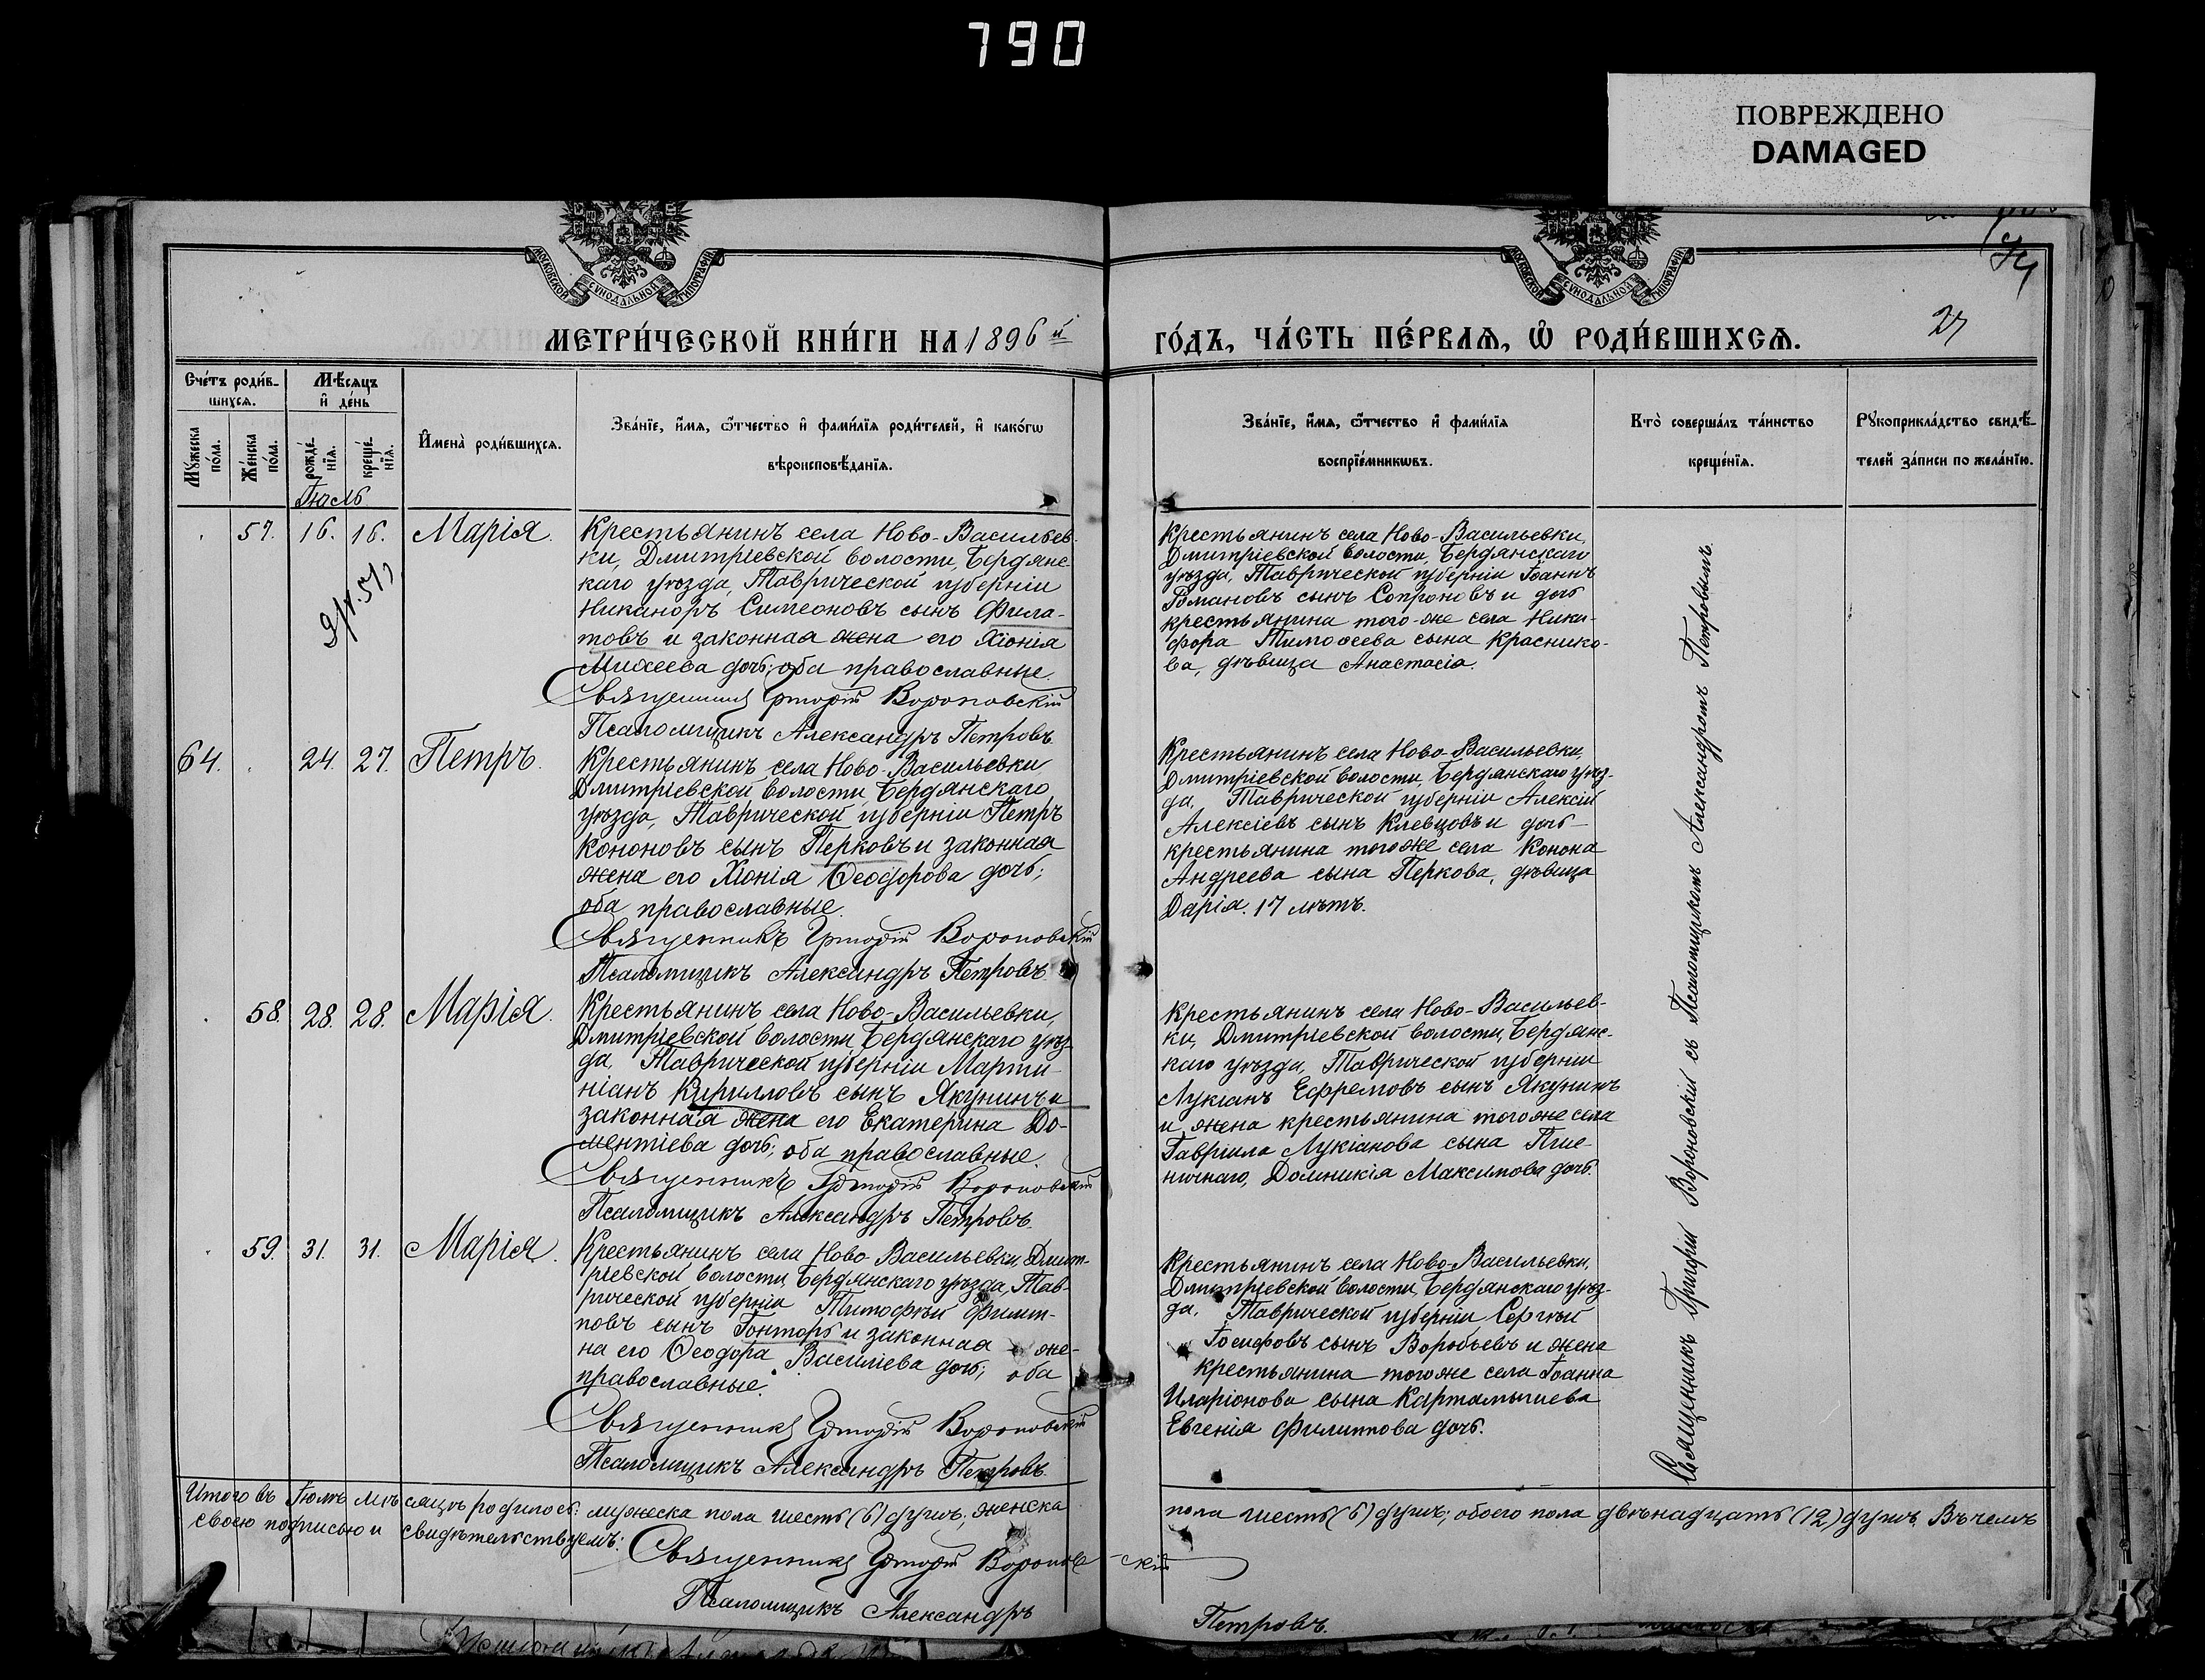 790
ПОВРЕЖДЕНО
DAMAGED
МОСКОВСКОЙ СУНОДАЛЬНОЙ ТИПОГРАФІИ
МОСКОВСКОЙ СУНОДАЛЬНОЙ ТИПОГРАФІИ
МЕТРИ́ЧЕСКОЙ КНИ́ГИ НА 1896 й
ГО́ДЪ, ЧА́СТЬ ПЕ́РВАѦ, Ѽ РОДИ́ВШИХСѦ.
27
Сче́тъ роди́в-
шихсѧ.
Мѣ́сѧцъ
и҆ де́нь
Мꙋ́жеска
по́ла.
Же́нска
по́ла.
рожде́-
нїѧ.
креще́-
нїѧ.
И҆мена̀ роди́вшихсѧ.
Зва́нїе, и҆́мѧ, ѻ҆́тчество и҆ фами́лїѧ роди́телей, и҆ како́гѡ
вѣроисповѣ́данїѧ.
Зва́нїе, и҆́мѧ, ѻ҆́тчество и҆ фами́лїѧ
воспрїе́мникѡвъ.
Кто̀ соверша́лъ та́инство
креще́нїѧ.
Рꙋкоприкла́дство свидѣ́-
телей за́писи по жела́нїю.
Іюль
57. 16. 16. Марія.
Крестьянинъ села Ново-Васильев-
ки, Дмитріевской волости, Бердянс-
каго уѣзда, Таврической губерніи
Никаноръ Симеоновъ сынъ Фила-
товъ и законная жена его Хіонія
Михеева дочь; оба православные.
Священникъ Григорій Вороновскій
Псаломщикъ Александръ Петровъ.
Крестьянинъ села Ново-Васильевки,
Дмитріевской волости, Бердянскаго
уѣзда, Таврической губерніи Іоаннъ
Романовъ сынъ Сопроновъ и дочь
крестьянина того-же села Ники-
фора Тимоѳеева сына Краснико-
ва, дѣвица Анастасія.
64. 24. 27. Петръ.
Крестьянинъ села Ново-Васильевки
Дмитріевской волости, Бердянскаго
уѣзда, Таврической губерніи Петръ
Кононовъ сынъ Перковъ и законная
жена его Хіонія Ѳеодорова дочь;
оба православные.
Священникъ Григорій Вороновскій
Псаломщикъ Александръ Петровъ
Крестьянинъ села Ново-Васильевки,
Дмитріевской волости, Бердянскаго уѣз-
да, Таврической губерніи Алексій
Алексіевъ сынъ Клевцовъ и дочь-
крестьянина того же села Конона
Андреева сына Перкова, дѣвица
Дарія. 17 лѣтъ.
58. 28. 28. Марія.
Крестьянинъ села Ново-Васильевки,
Дмитріевской волости, Бердянскаго уѣз-
да, Таврической губерніи Марти-
ніанъ Кирилловъ сынъ Якунинъ и
законная жена его Екатерина До-
ментіева дочь; оба православные.
Священникъ Григорій Вороновскій
Псаломщикъ Александръ Петровъ.
Крестьянинъ села Ново-Васильев-
ки, Дмитріевской волости, Бердянс-
каго уѣзда, Таврической губерніи
Лукіанъ Ефремовъ сынъ Якунинъ
и жена крестьянина того же села
Гавріила Лукіанова сына Пше-
ничнаго, Домникія Максимова дочь.
59. 31. 31. Марія.
Крестьянинъ села Ново-Васильевки, Дмит-
ріевской волости, Бердянскаго уѣзда, Тав-
рической губерніи Тимофей Филип-
повъ сынъ Гонтарь и законная же-
на его Ѳеодора Василіева дочь; оба
православные.
Священникъ Григорій Вороновскій
Псаломщикъ Александръ Петровъ
Крестьянинъ села Ново-Васильевки,
Дмитріевской волости, Бердянскаго уѣз-
да, Таврической губерніи Сергѣй
Іосифовъ сынъ Воробьевъ и жена
крестьянина того же села Іоанна
Иларіонова сына Картамышева
Евгенія Филиппова дочь.
Священникъ Григорій Вороновскій съ Псаломщикомъ Александромъ Петровымъ.
Итого въ Іюлѣ мѣсяцѣ родилось: мужеска пола шесть (6) душъ, женска
пола шесть (6) душъ; обоего пола двѣнадцать (12) душъ. Въ чемъ
своею подписью и свидѣтельствуемъ:
Священникъ Григорій Вороновскій
Псаломщикъ Александръ
Петровъ.